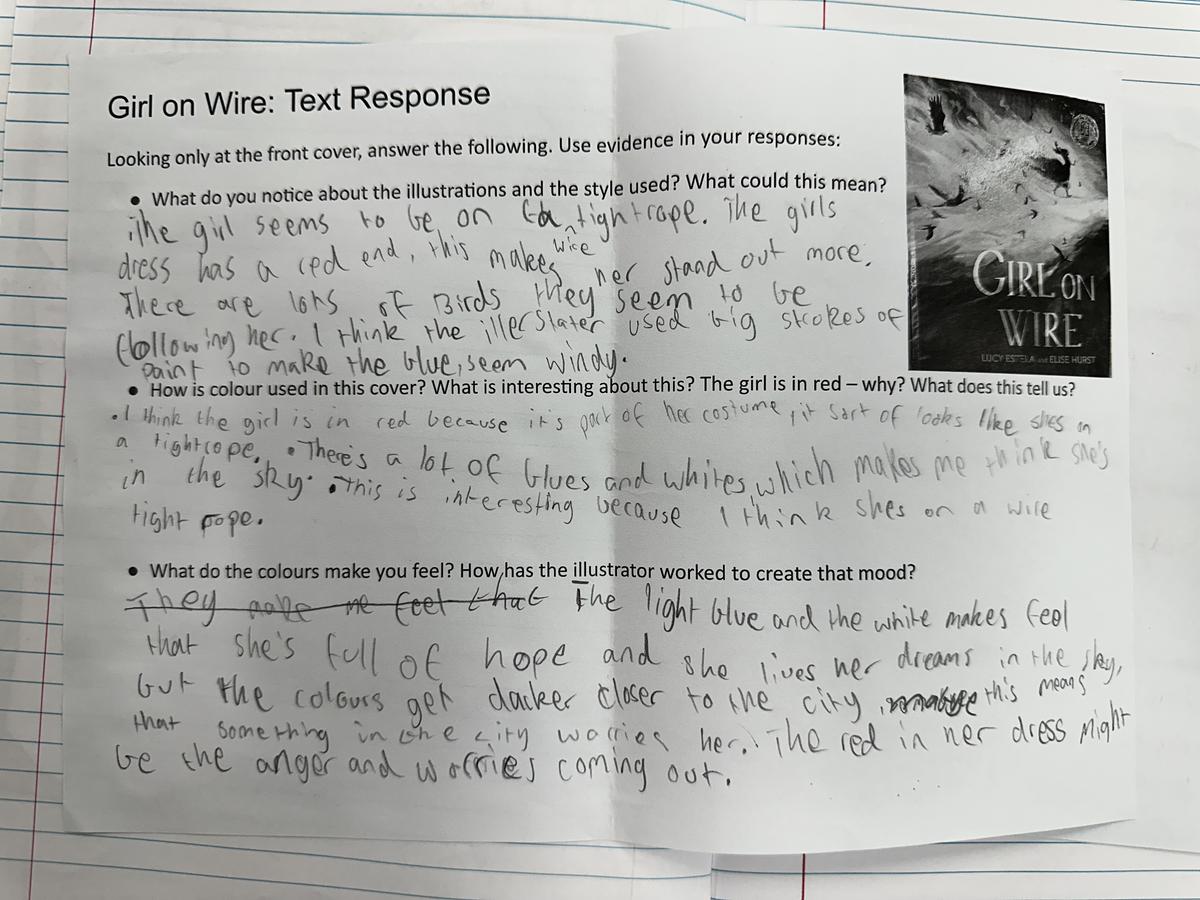 Girl on Wire: Text Response
Looking only at the front cover, answer the following. Use evidence in your responses:
• What do you notice about the illustrations and the style used? What could this mean?
The girl seems to be on a tightrope. The girls
wire
dress has a red end, this makes her stand out more.
There are lots of Birds they seem to be
following her. I think the illerstater used big strokes of
paint to make the blue, seem windy.
• How is colour used in this cover? What is interesting about this? The girl is in red – why? What does this tell us?
• I think the girl is in red because it's part of her costume, it sort of looks like shes on
a tightrope. • There's a lot of blues and whites, which makes me think she's
in the sky. • This is interesting because I think shes on a wire
tight rope.
• What do the colours make you feel? How has the illustrator worked to create that mood?
They make me feel that The light blue and the white makes feel
that she's full of hope and she lives her dreams in the sky,
but the colours get darker closer to the city, this means
that something in the city worries her. The red in her dress might
be the anger and worries coming out.
GIRL ON
WIRE
LUCY ESTELA and ELISE HURST